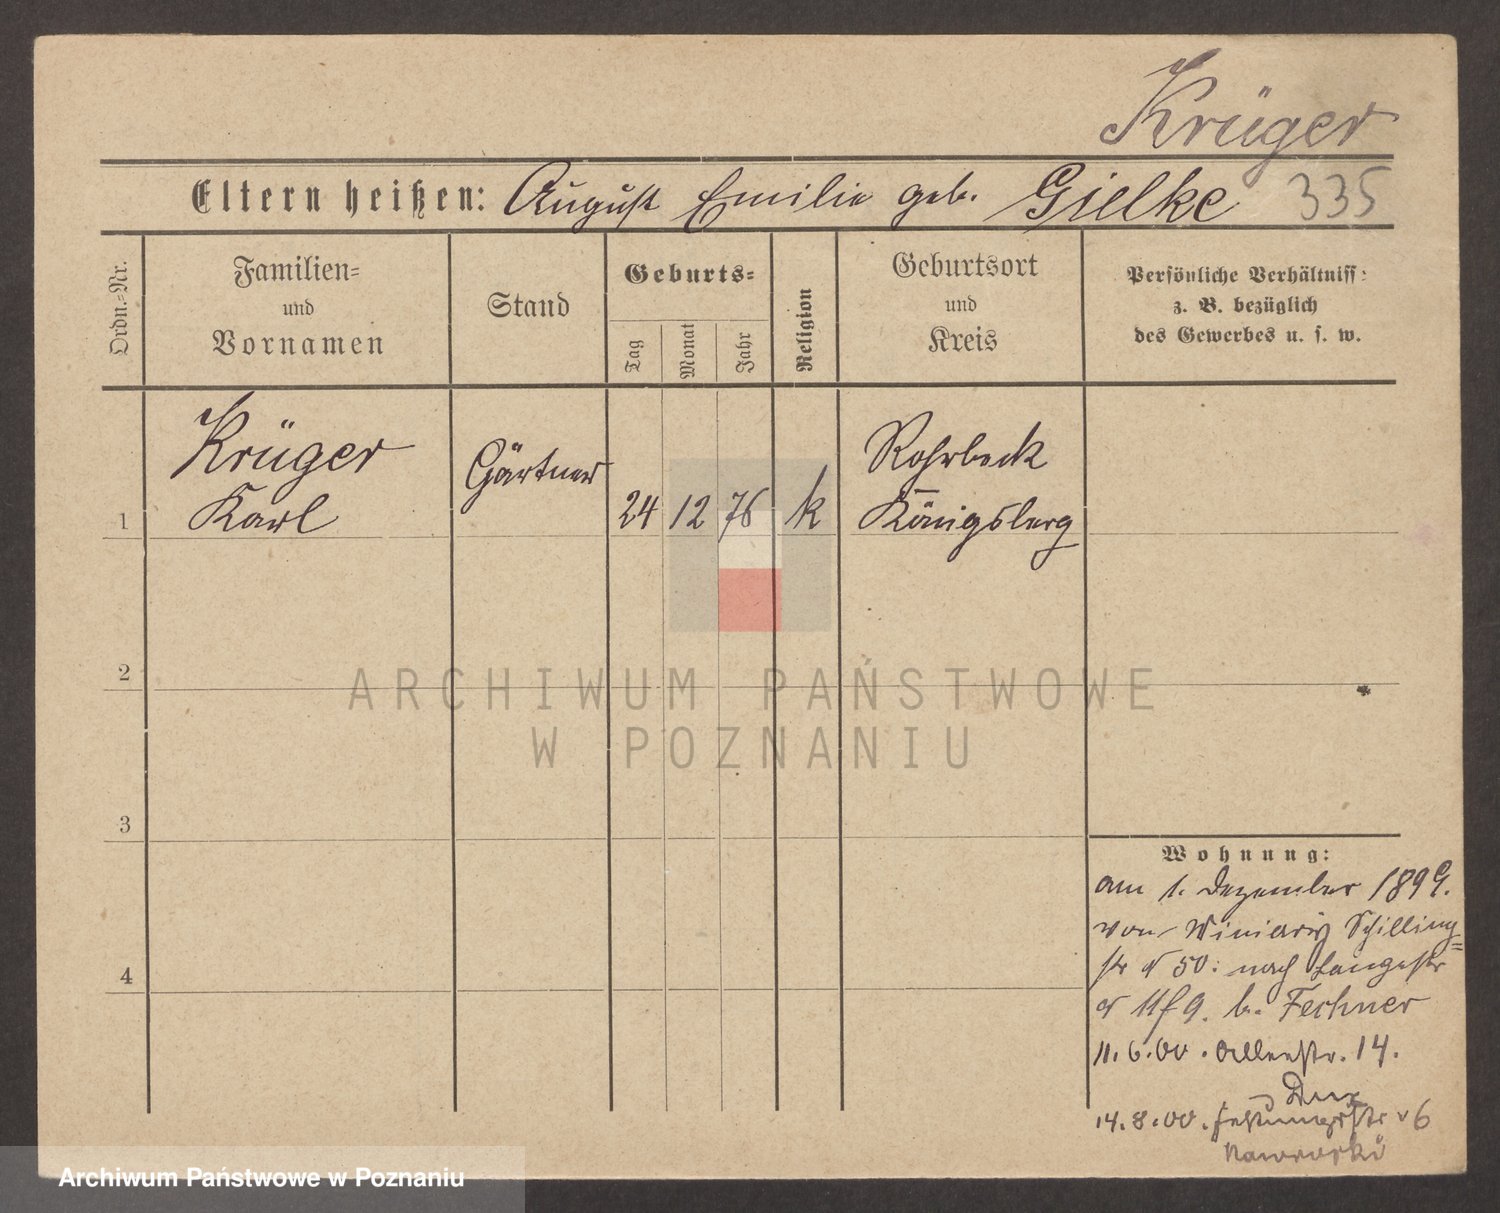 Krüger
Eltern heißen: August Emilie geb. Gielke 335
Ordn.-Nr.
Familien-
und
Vornamen
Stand
Geburts-
Tag
Monat
Jahr
Religion
Geburtsort
und
Kreis
Persönliche Verhältniss:
z. B. bezüglich
des Gewerbes u. s. w.
Krüger
Karl
Gärtner
1
24 12 76 k
Rohrbeck
Königsberg
2
ARCHIWUM PAŃSTWOWE
W POZNANIU
3
4
Wohnung:
am 1. Dezember 1899.
von Winiary Schilling=
str 50: nach Langestr
b. Fechner
11.6.00. Alleestr. 14.
14.8.00. 6
Nawrocki
Archiwum Państwowe w Poznaniu